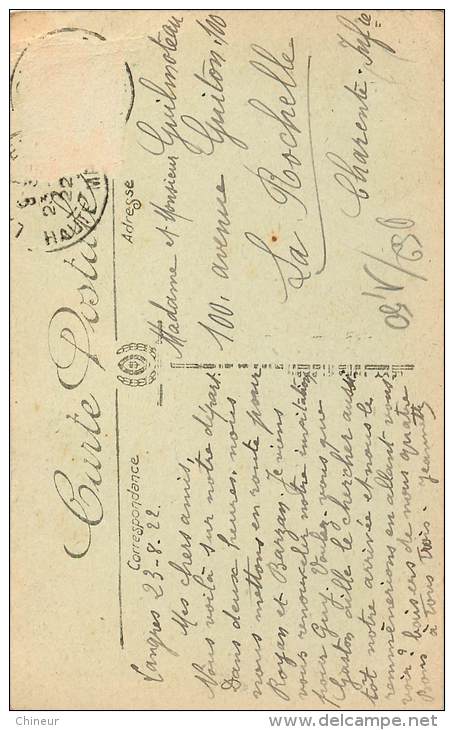 Carte Postale
Correspondance
Adresse
Langres 23-8.22.
Mes chers amis,
Nous voilà sur notre départ
Dans deux heures, nous
nous mettons en route pour
Royan et Barzan. Je viens
vous renouveler notre invitation
pour Guy. Voulez-vous que
Gaston aille le chercher aussi
tôt notre arrivée et nous le
remmènerions en allant vous
voir? baisers de nous quatre
Bons à vous trois. Jeannette
Madame et Monsieur Guilmoteau
100, avenue Guiton, 100
La Rochelle
Charente-Infre
23
22
Chineur
www.delcampe.net